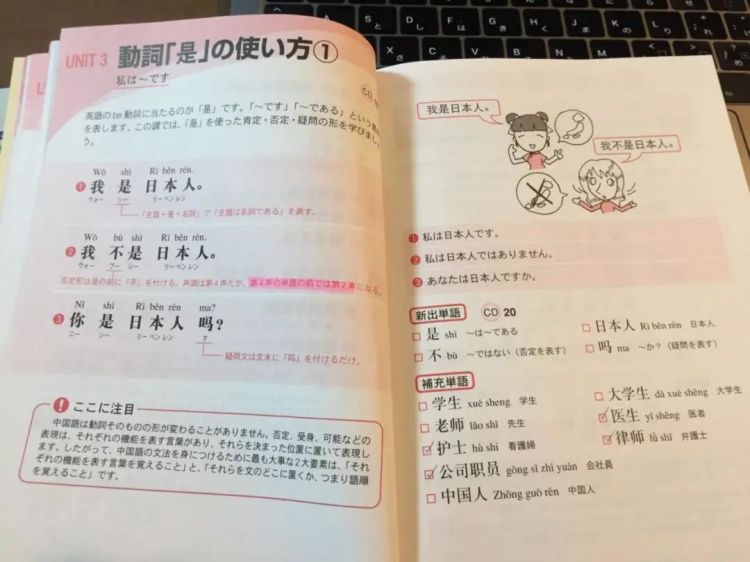 UNIT 3 動詞「是」の使い方①
私は〜です
CD
英語のbe動詞に当たるのが「是」です。「〜です」「〜である」という
を表します。この課では、「是」を使った肯定・否定・疑問の形を学びまし
う。
Wǒ shì Rì běn rén.
❶ 我 是 日本人。
ウォー シー リーベンレン
「主語+是+名詞」で「主語は名詞である」を表す。
Wǒ bú shì Rì běn rén.
❷ 我 不是 日本人。
ウォー ブー シー リーベンレン
否定形は是の前に「不」を付ける。声調は第4声だが、第4声の単語の前では第2声になる。
Nǐ shì Rì běn rén ma?
❸ 你 是 日本人 吗?
ニー シー リーベンレン マ
疑問文は文末に「吗」を付けるだけ。
ここに注目
中国語は動詞そのものの形が変わることがありません。否定、受身、可能などの
表現は、それぞれの機能を表す言葉があり、それらを決まった位置に置いて表現し
ます。したがって、中国語の文法を身につけるために最も大事な2大要素は、「それ
ぞれの機能を表す言葉を覚えること」と、「それらを文のどこに置くか、つまり語順
を覚えること」です。
我是日本人。
我不是日本人。
❶ 私は日本人です。
❷ 私は日本人ではありません。
❸ あなたは日本人ですか。
新出単語 CD 20
是 shì 〜は〜である
日本人 Rì běn rén 日本人
不 bù 〜ではない(否定を表す)
吗 ma 〜か?(疑問を表す)
補充単語
学生 xué sheng 学生
大学生 dà xué shēng 大学生
老师 lǎo shī 先生
医生 yī shēng 医者
护士 hù shi 看護婦
律师 lǜ shī 弁護士
公司职员 gōng sī zhí yuán 会社員
中国人 Zhōng guó rén 中国人